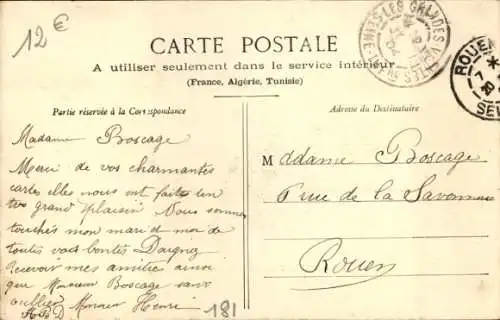 12€
CARTE POSTALE
A utiliser seulement dans le service intérieur
(France, Algérie, Tunisie)
Partie réservée à la Correspondance
Adresse du Destinataire
Madame Boscage
Merci de vos charmantes
cartes elles nous ont faites un
tres grand plaisir Nous sommes
touchés mon mari et moi de
toutes vos bontés Daignez
Recevoir mes amitiés ainsi
que Monsieur Boscage sans
oublier Monsieur Henri
Madame Boscage
rue de la Savonnerie
Rouen
181
ROUEN
7
20